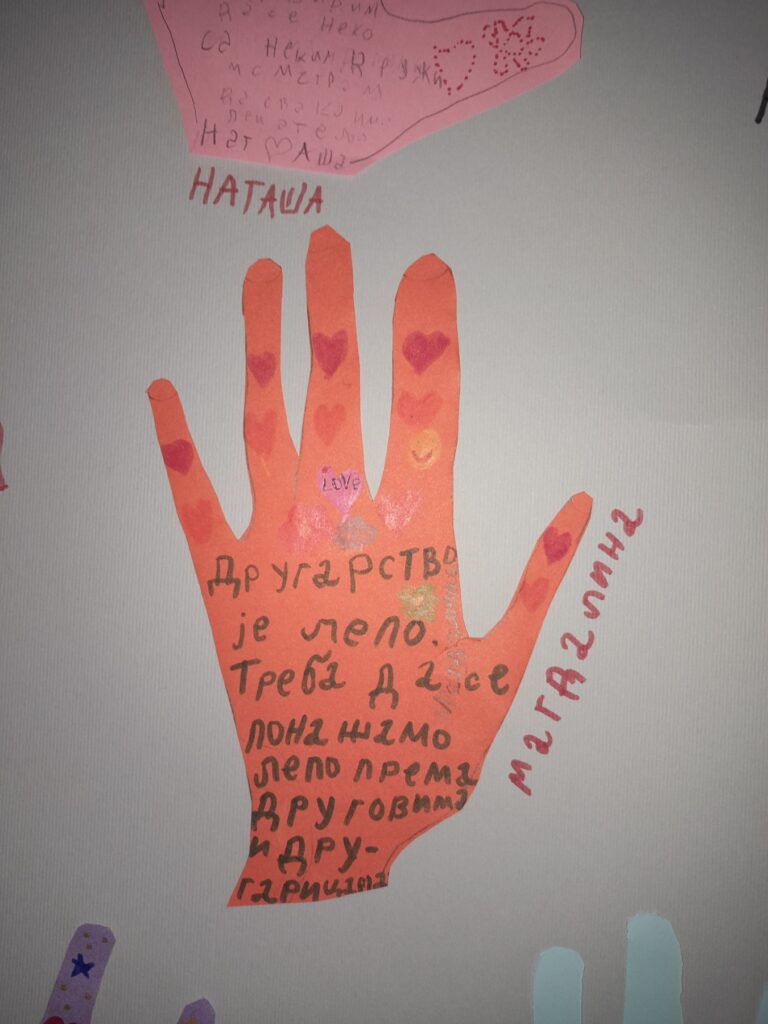 да се неко
са неким дружи
Нат аша
НАТАША
LOVE
Другарство
је лепо.
Треба да се
понашамо
лепо према
друговима
и дру-
гарицама
магдалина